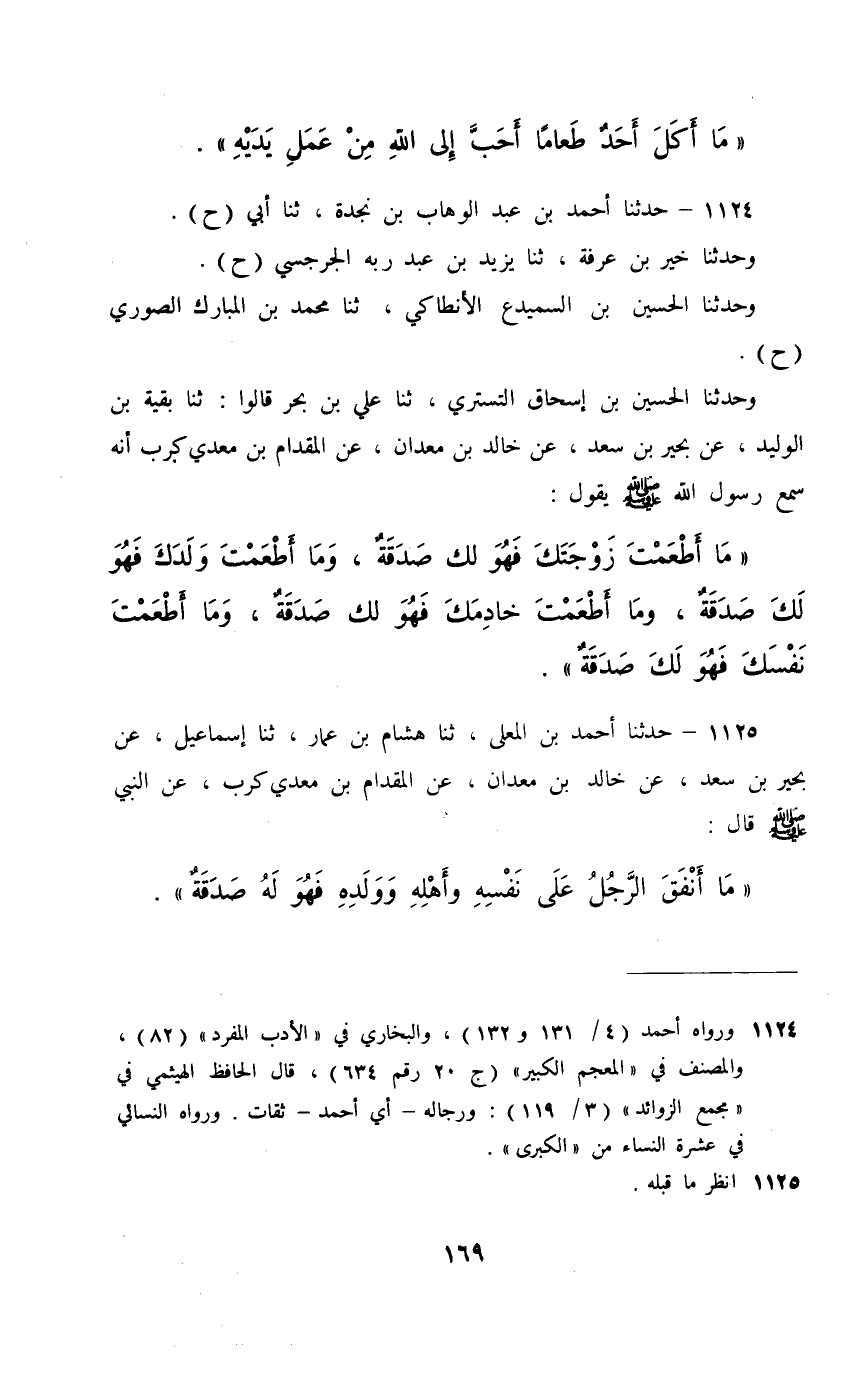 « مَا أَكَلَ أَحَدٌ طَعامًا أَحَبَّ إِلى اللهِ مِنْ عَمَلِ يَدَيْهِ » .
١١٢٤ – حدثنا أحمد بن عبد الوهاب بن نجدة ، ثنا أبي (ح) .
وحدثنا خير بن عرفة ، ثنا يزيد بن عبد ربه الجرجسي (ح) .
وحدثنا الحسين بن السميدع الأنطاكي ، ثنا محمد بن المبارك الصوري
(ح) .
وحدثنا الحسين بن إسحاق التستري ، ثنا علي بن بحر قالوا : ثنا بقية بن
الوليد ، عن بحير بن سعد ، عن خالد بن معدان ، عن المقدام بن معدي كرب أنه
سمع رسول الله ﷺ يقول :
« مَا أَطْعَمْتَ زَوْجَتَكَ فَهُوَ لك صَدَقَةٌ ، وَمَا أَطْعَمْتَ وَلَدَكَ فَهُوَ
لَكَ صَدَقَةٌ ، ومَا أَطْعَمْتَ خادِمَكَ فَهُوَ لك صَدَقَةٌ ، وَمَا أَطْعَمْتَ
نَفْسَكَ فَهُوَ لَكَ صَدَقَةٌ » .
١١٢٥ – حدثنا أحمد بن المعلى ، ثنا هشام بن عمار ، ثنا إسماعيل ، عن
بحير بن سعد ، عن خالد بن معدان ، عن المقدام بن معدي كرب ، عن النبي
ﷺ قال :
« مَا أَنْفَقَ الرَّجُلُ عَلَى نَفْسِهِ وأَهْلِهِ وَوَلَدِهِ فَهُوَ لَهُ صَدَقَةٌ » .
١١٢٤ ورواه أحمد (٤/ ١٣١ و ١٣٢) ، والبخاري في «الأدب المفرد» (٨٢) ،
والمصنف في «المعجم الكبير» (ج ٢٠ رقم ٦٣٤) ، قال الحافظ الهيثمي في
«مجمع الزوائد» (٣/ ١١٩) : ورجاله – أي أحمد – ثقات . ورواه النسائي
في عشرة النساء من «الكبرى» .
١١٢٥ انظر ما قبله .
١٦٩